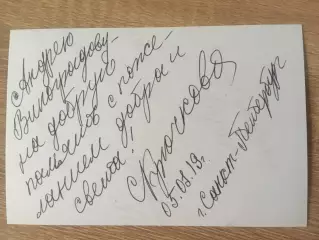 Андрею
Виноградову -
на добрую
память с поже-
ланием добра и
света!
Крючкова
05.03.19г.
г. Санкт-Петербург